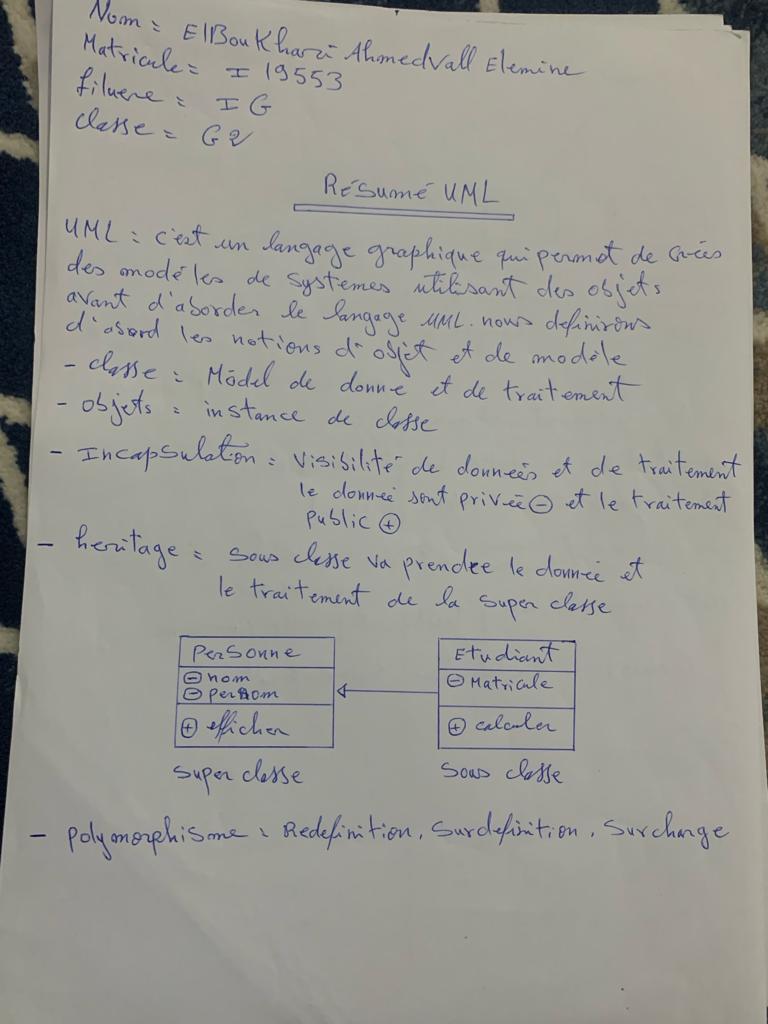 Nom = ElBouKhari AhmedVall Elemine
Matricule = I 19553
filiere = IG
classe = G2
Résumé UML
UML : c'est un langage graphique qui permet de créés
des modéles de systemes utilisant des objets
avant d'aborder le langage UML. nous definirons
d'abord les notions d'objet et de modèle
- classe : Model de donne et de traitement
- objets = instance de classe
- Incapsulation = Visibilité de donneés et de traitement
le donneé sont privée ⊖ et le traitement
public ⊕
- heritage = sous classe va prendre le donneé et
le traitement de la super classe
Personne
⊖ nom
⊖ pernom
⊕ efficher
Super classe
Etudiant
⊖ Matricule
⊕ calculer
Sous classe
- polymorphisme : Redefinition, Surdefinition, Surcharge